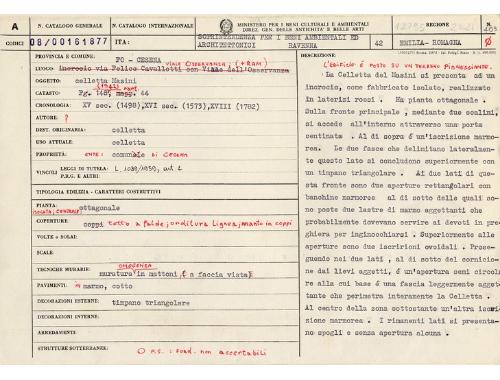 A
CODICI
N. CATALOGO GENERALE
08/00161877
N. CATALOGO INTERNAZIONALE
ITA:
MINISTERO PER I BENI CULTURALI E AMBIENTALI
DIREZ. GEN. DELLE ANTICHITÀ E BELLE ARTI
SOPRINTENDENZA PER I BENI AMBIENTALI ED
ARCHITETTONICI RAVENNA
42
REGIONE
EMILIA-ROMAGNA
N.
Ø
PROVINCIA E COMUNE: FO - CESENA
VIALE OSSERVANZA (+RAM)
LUOGO: incrocio via Felice Cavallotti con Viale dell'Osservanza
OGGETTO: celletta Masini
CATASTO: Fg. 148, mapp. 44
CRONOLOGIA: XV sec. (1498), XVI sec. (1573), XVIII (1782)
AUTORE: ?
DEST. ORIGINARIA: celletta
USO ATTUALE: celletta
PROPRIETÀ: ENTE: comunale DI CESENA
VINCOLI
LEGGI DI TUTELA: L. 1089/1939, art. 4
P.R.G. E ALTRI:
TIPOLOGIA EDILIZIA - CARATTERI COSTRUTTIVI
PIANTA: ottagonale
COPERTURE: coppi tetto a falde; orditura lignea; manto in coppi
VOLTE o SOLAI:
SCALE:
OMOGENEA
TECNICHE MURARIE: muratura in mattoni (a faccia vista)
PAVIMENTI: in marmo, cotto
DECORAZIONI ESTERNE: timpano triangolare
DECORAZIONI INTERNE:
ARREDAMENTO:
STRUTTURE SOTTERRANEE: O P.S.: fond. non accertabili
DESCRIZIONE:
L'EDIFICIO È POSTO SU UN TERRENO PIANEGGIANTE.
La Celletta del Masini si presenta ad un
incrocio, come fabbricato isolato, realizzato
in laterizi rossi. Ha pianta ottagonale.
Sulla fronte principale, mediante due scalini,
si accede all'interno attraverso una porta
centinata. Al di sopra è un'iscrizione marmo-
rea. Le due fasce che delimitano lateralmen-
te questo lato si concludono superiormente con
un timpano triangolare. Ai due lati di que-
sta fronte sono due aperture rettangolari con
banchine marmoree al di sotto delle quali so-
no poste due lastre di marmo aggettanti che
probabilmente dovevano servire ai devoti in pre-
ghiera per inginocchiarsi. Superiormente alle
aperture sono due iscrizioni ovoidali. Prose-
guendo nei due lati, al di sotto del cornicio-
ne dai lievi aggetti, è un'apertura semi circola-
re alla cui base è una fascia leggermente agget-
tante che perimetra interamente la Celletta.
Al centro della zona sottostante un'altra iscri-
zione marmorea. I rimanenti lati si presenta-
no spogli e senza apertura alcuna.